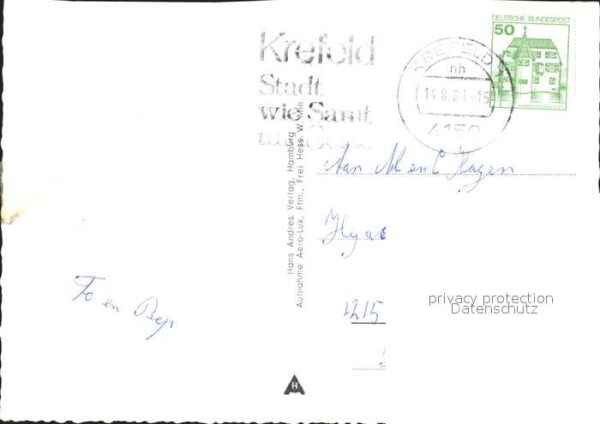 DEUTSCHE BUNDESPOST
50
Krefeld
Stadt
wie Samt
und Seide
KREFELD 1
nh
14.8.81-16
4150
Hans Andres Verlag, Hamburg
Aufnahme Aero-Lux, Ffm., Frei Hess.
Aan M en C Hagen
1215
Fo en Bep
H
privacy protection
Datenschutz